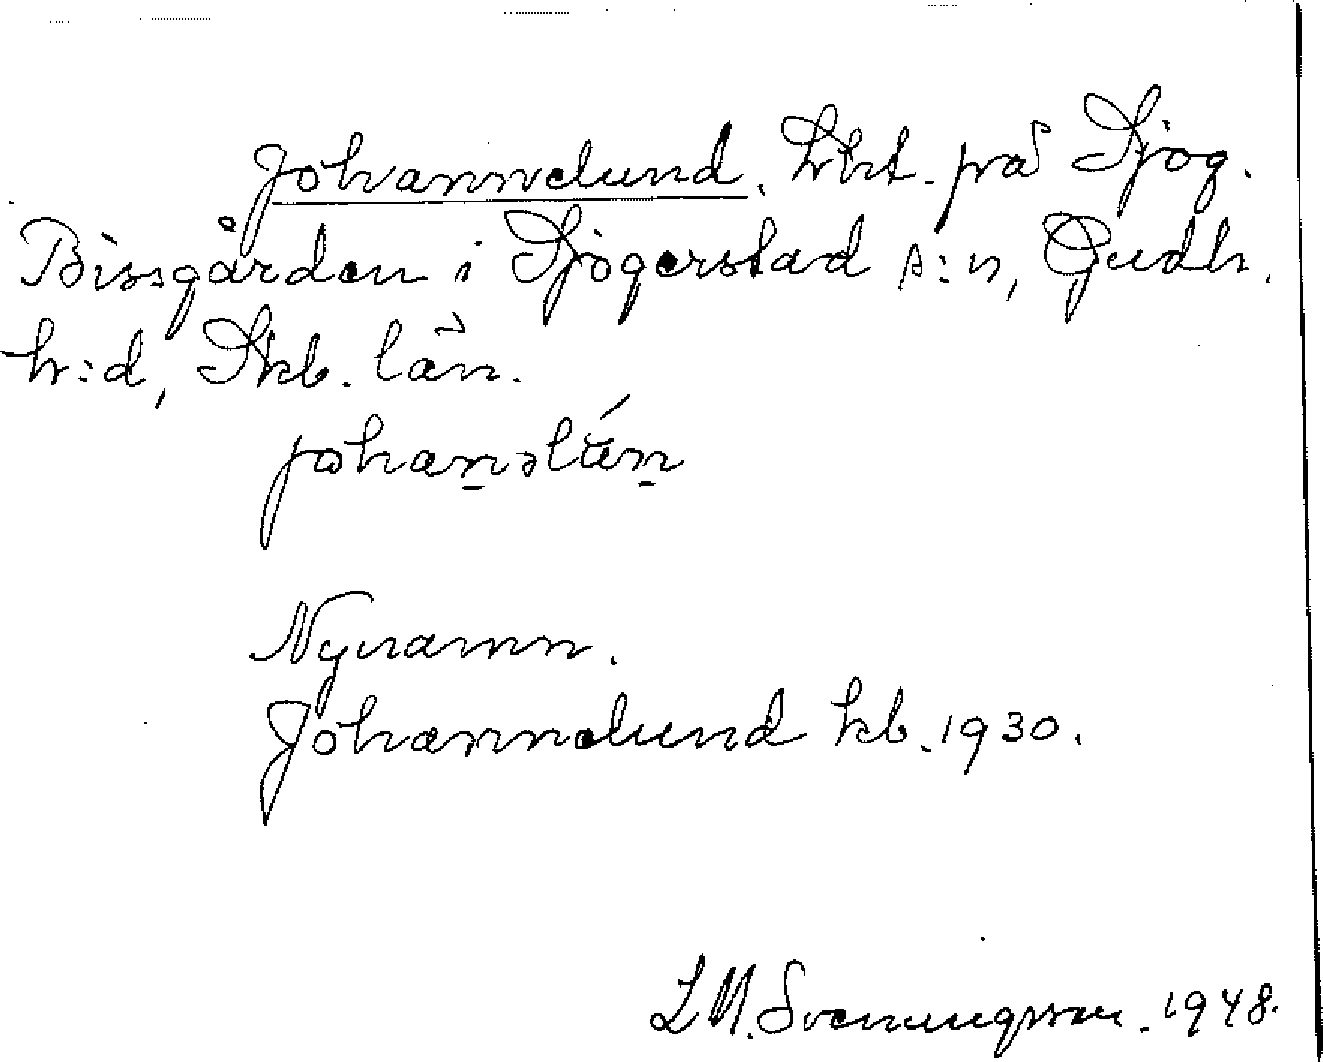 Johannelund. Lht. på Sjog.
Bissgården i Sjögerstad s:n, Gudh.
h:d, Skb. län.
johanəlún
Nynamn.
Johannelund kb. 1930.
L M. Svenungsson. 1948.